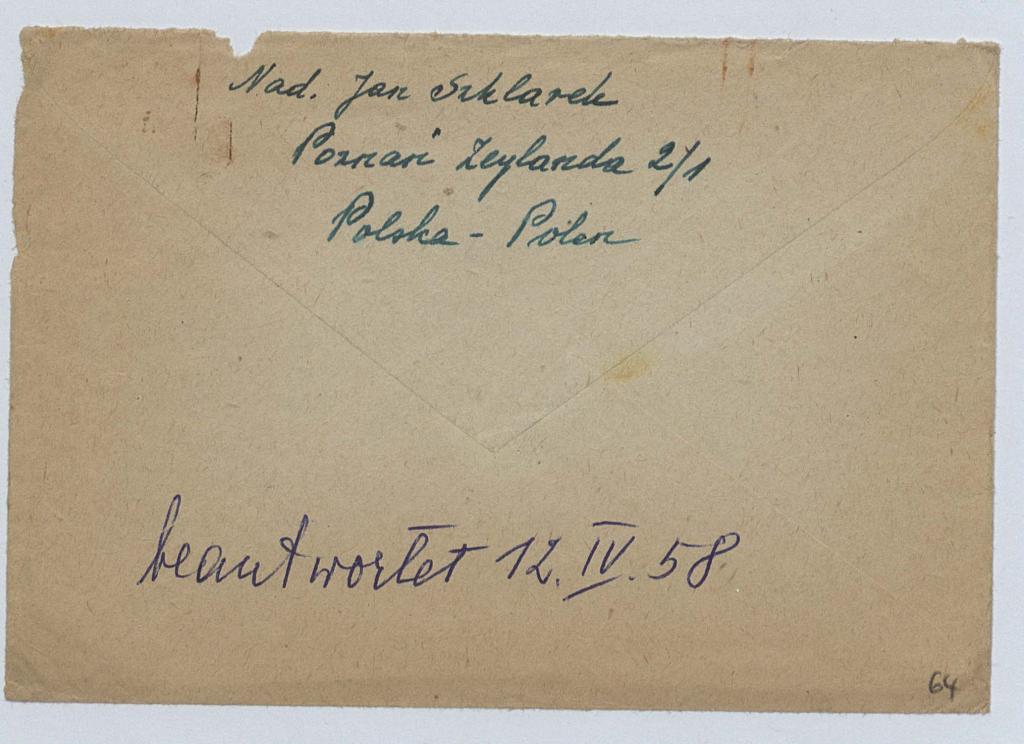 Nad. Jan Szklarek
Poznań Zeylanda 2/1
Polska - Polen
beantwortet 12. IV. 58
64